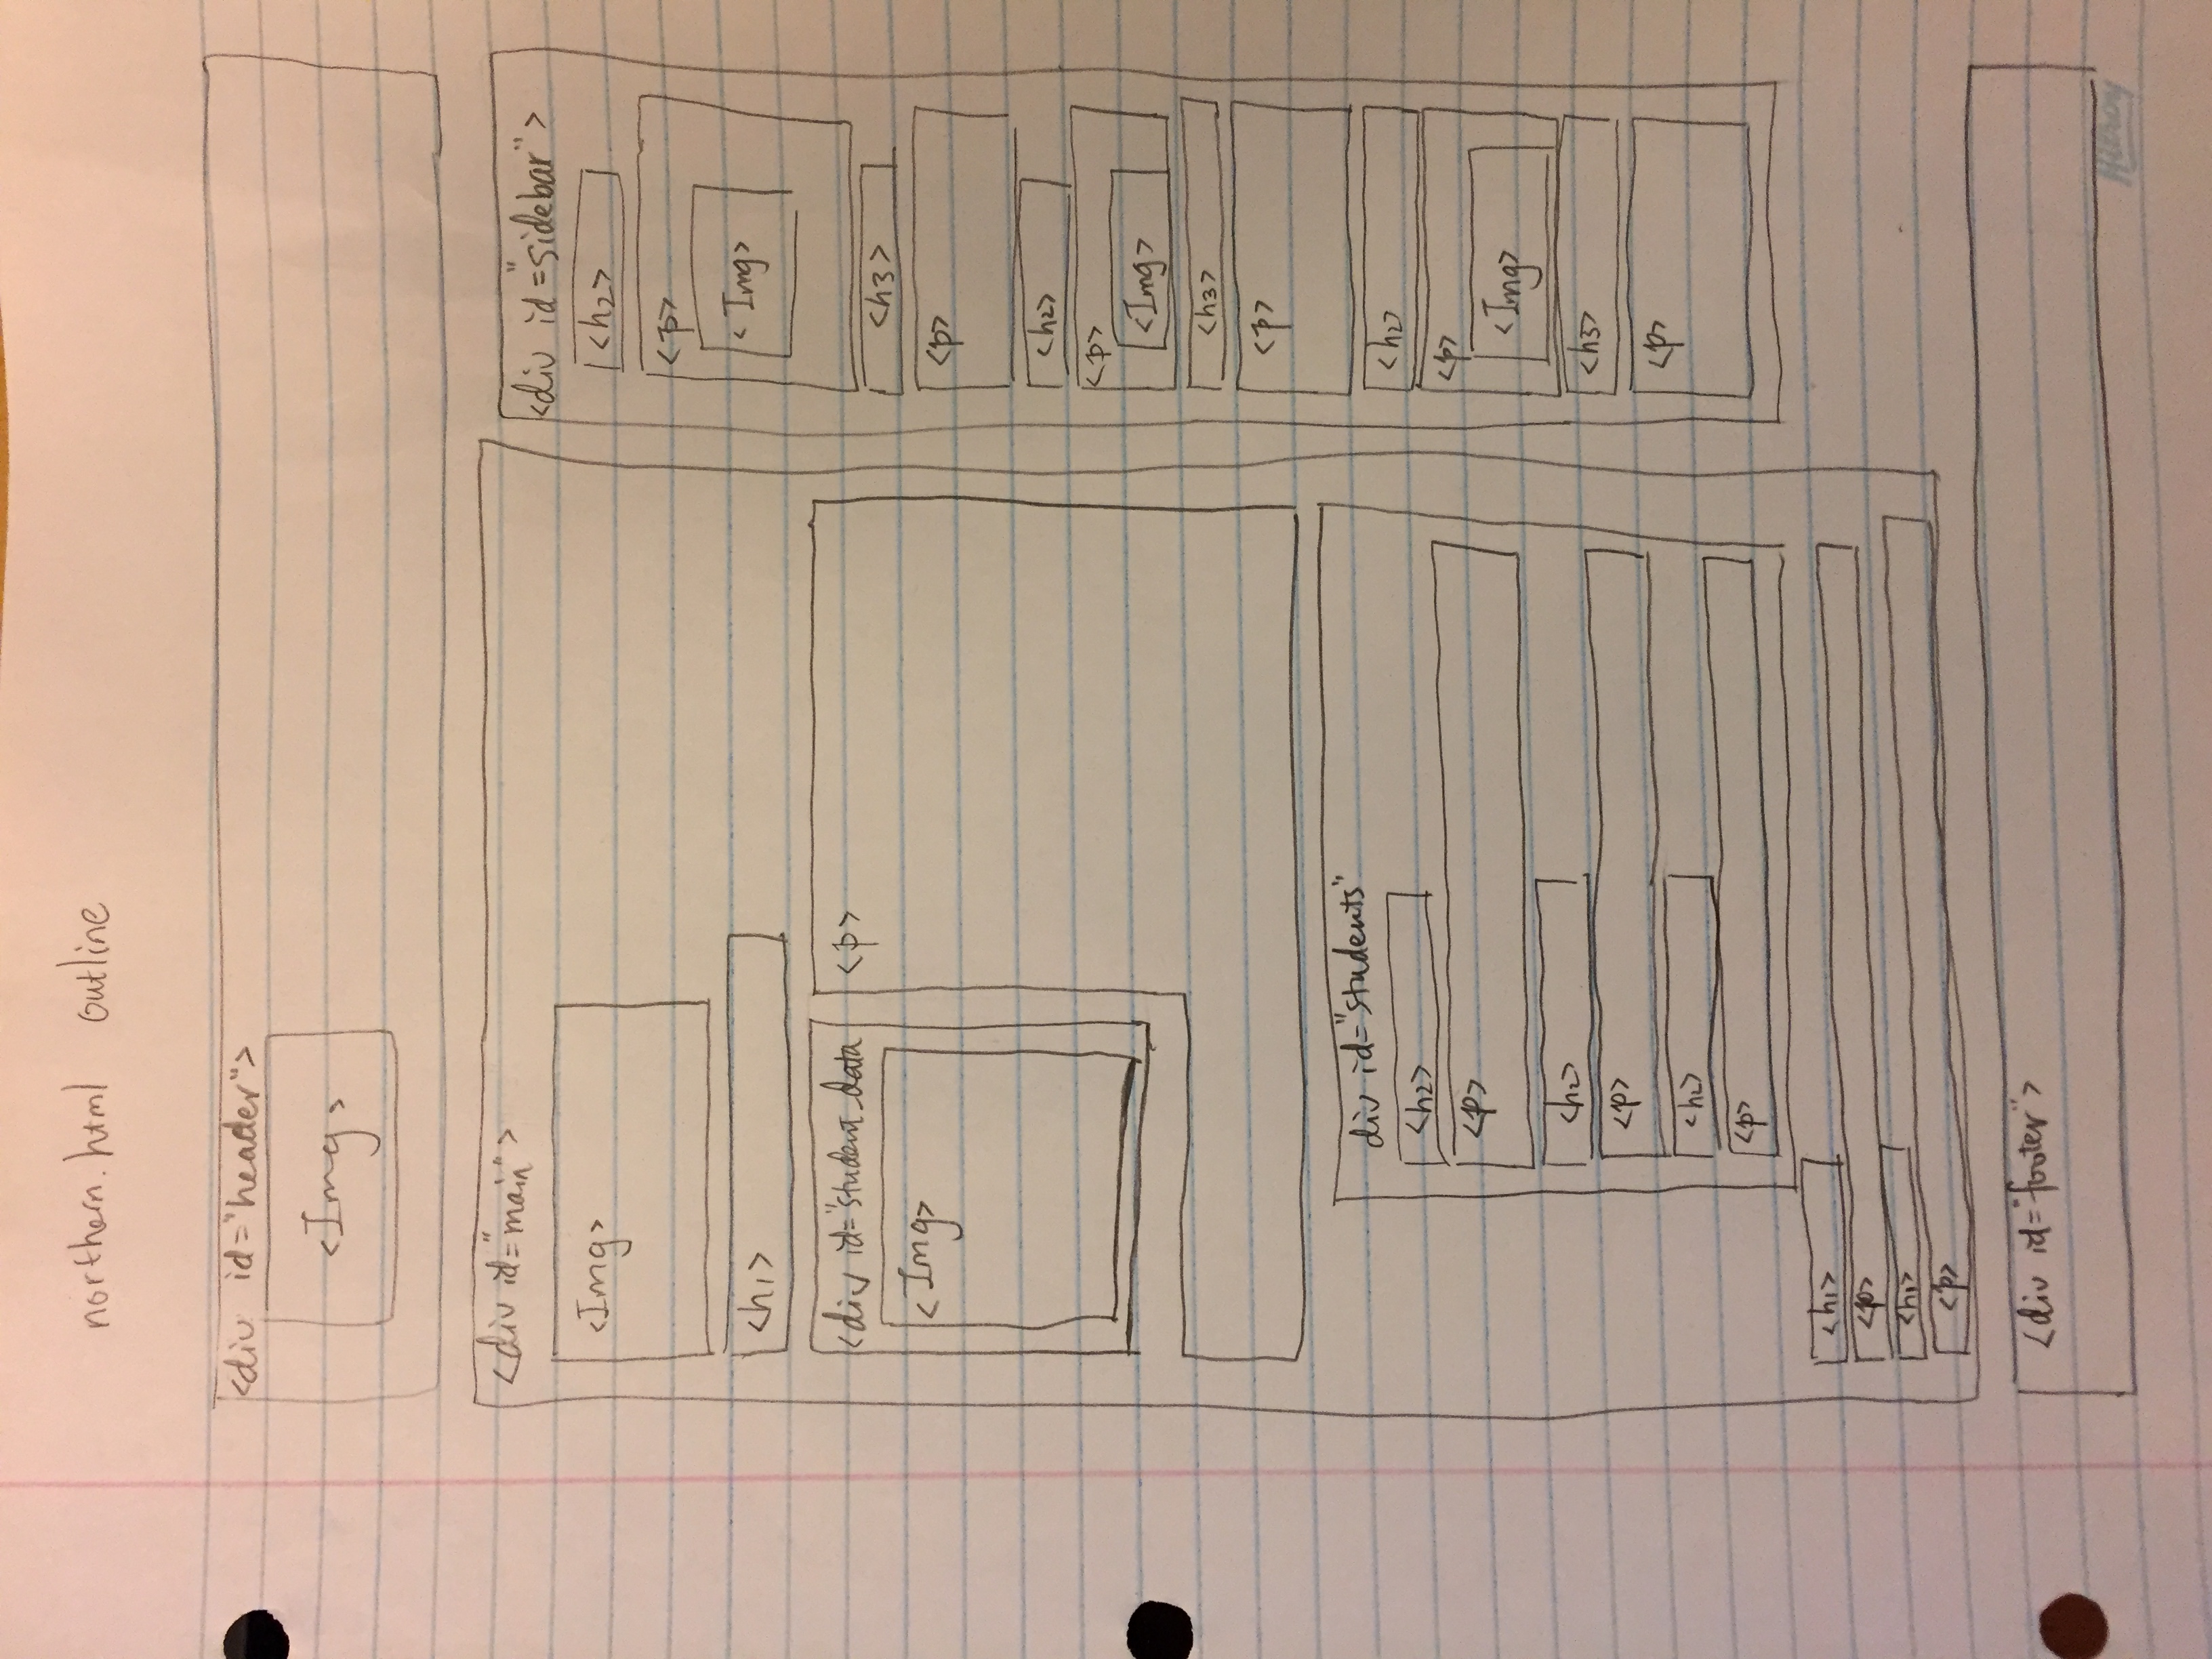 northern.html outline
<div id="header">
<Img>
<div id="main">
<Img>
<h1>
<div id="student_data
<Img>
<p>
div id="students"
<h2>
<p>
<h2>
<p>
<h2>
<p>
<h1>
<p>
<h1>
<p>
<div id="sidebar">
<h2>
<p>
<Img>
<h3>
<p>
<h2>
<p>
<Img>
<h3>
<p>
<h2>
<p>
<Img>
<h3>
<p>
<div id="footer">
Hilroy